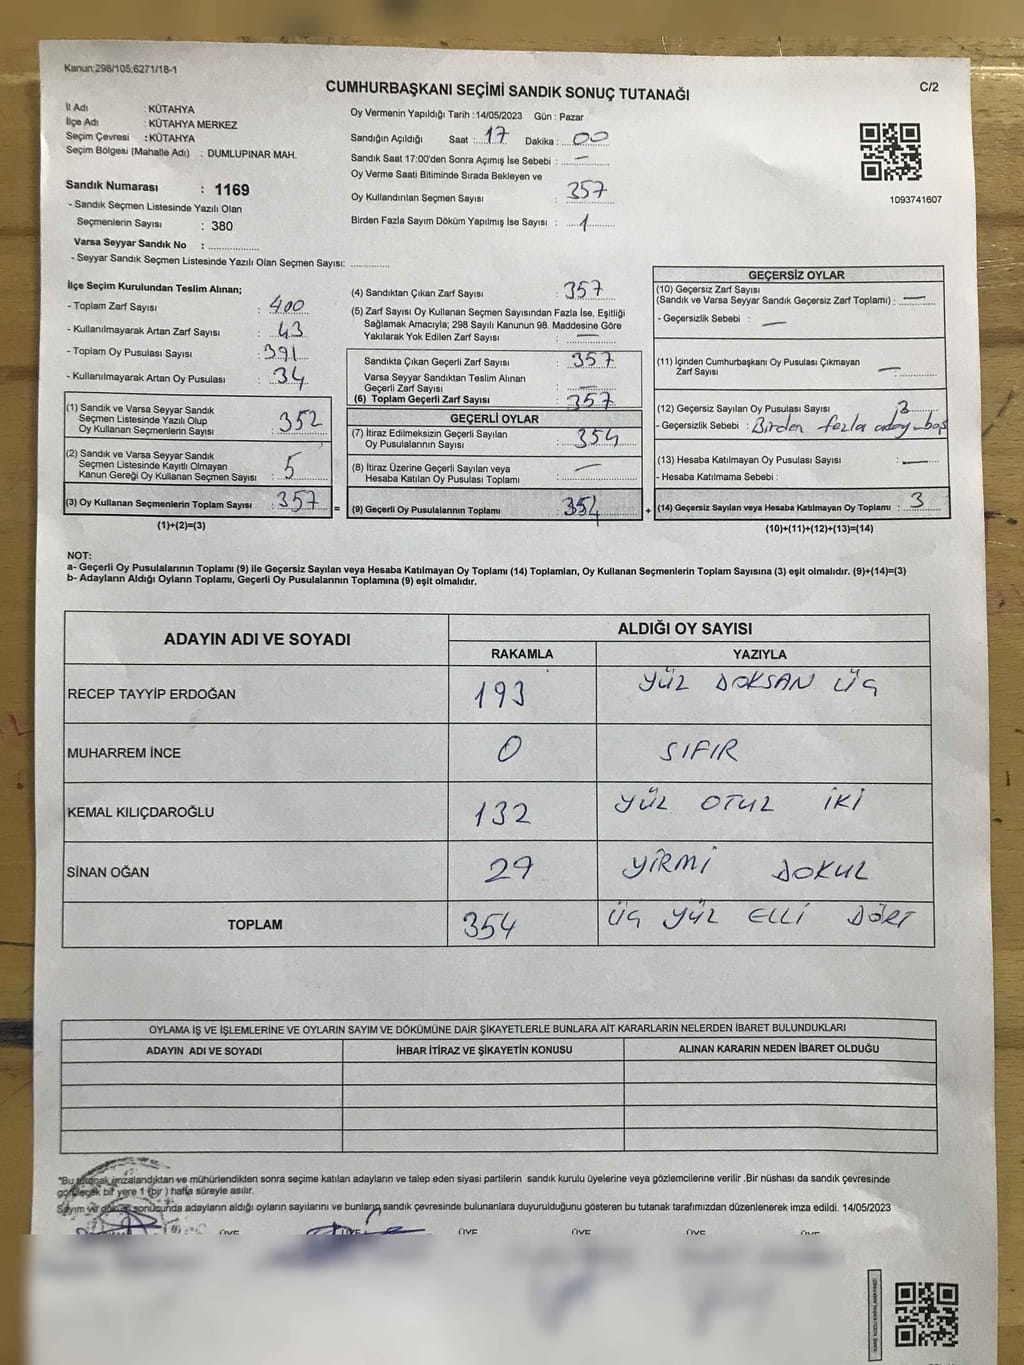 Kanun:298/105,6271/18-1
CUMHURBAŞKANI SEÇİMİ SANDIK SONUÇ TUTANAĞI
C/2
İl Adı : KÜTAHYA
İlçe Adı : KÜTAHYA MERKEZ
Seçim Çevresi : KÜTAHYA
Seçim Bölgesi (Mahalle Adı) : DUMLUPINAR MAH.
Sandık Numarası : 1169
- Sandık Seçmen Listesinde Yazılı Olan
Seçmenlerin Sayısı : 380
Varsa Seyyar Sandık No :
- Seyyar Sandık Seçmen Listesinde Yazılı Olan Seçmen Sayısı:
Oy Vermenin Yapıldığı Tarih : 14/05/2023 Gün : Pazar
Sandığın Açıldığı Saat : 17 Dakika : 00
Sandık Saat 17:00'den Sonra Açımış İse Sebebi : —
Oy Verme Saati Bitiminde Sırada Bekleyen ve
Oy Kullandırılan Seçmen Sayısı : 357
Birden Fazla Sayım Döküm Yapılmış İse Sayısı : 1
1093741607
İlçe Seçim Kurulundan Teslim Alınan;
- Toplam Zarf Sayısı : 400
- Kullanılmayarak Artan Zarf Sayısı : 43
- Toplam Oy Pusulası Sayısı : 391
- Kullanılmayarak Artan Oy Pusulası : 34
(1) Sandık ve Varsa Seyyar Sandık
Seçmen Listesinde Yazılı Olup
Oy Kullanan Seçmenlerin Sayısı : 352
(2) Sandık ve Varsa Seyyar Sandık
Seçmen Listesinde Kayıtlı Olmayan
Kanun Gereği Oy Kullanan Seçmen Sayısı : 5
(3) Oy Kullanan Seçmenlerin Toplam Sayısı : 357 =
(1)+(2)=(3)
(4) Sandıktan Çıkan Zarf Sayısı : 357
(5) Zarf Sayısı Oy Kullanan Seçmen Sayısından Fazla İse, Eşitliği
Sağlamak Amacıyla; 298 Sayılı Kanunun 98. Maddesine Göre
Yakılarak Yok Edilen Zarf Sayısı : —
Sandıkta Çıkan Geçerli Zarf Sayısı : 357
Varsa Seyyar Sandıktan Teslim Alınan
Geçerli Zarf Sayısı : —
(6) Toplam Geçerli Zarf Sayısı : 357
GEÇERLİ OYLAR
(7) İtiraz Edilmeksizin Geçerli Sayılan
Oy Pusulalarının Sayısı : 354
(8) İtiraz Üzerine Geçerli Sayılan veya
Hesaba Katılan Oy Pusulası Toplamı : —
(9) Geçerli Oy Pusulalarının Toplamı : 354 +
GEÇERSİZ OYLAR
(10) Geçersiz Zarf Sayısı
(Sandık ve Varsa Seyyar Sandık Geçersiz Zarf Toplamı) : —
- Geçersizlik Sebebi : —
(11) İçinden Cumhurbaşkanı Oy Pusulası Çıkmayan
Zarf Sayısı : —
(12) Geçersiz Sayılan Oy Pusulası Sayısı : 3
- Geçersizlik Sebebi : Birden fazla aday-boş
(13) Hesaba Katılmayan Oy Pusulası Sayısı : —
- Hesaba Katılmama Sebebi :
(14) Geçersiz Sayılan veya Hesaba Katılmayan Oy Toplamı : 3
(10)+(11)+(12)+(13)=(14)
NOT:
a- Geçerli Oy Pusulalarının Toplamı (9) ile Geçersiz Sayılan veya Hesaba Katılmayan Oy Toplamı (14) Toplamları, Oy Kullanan Seçmenlerin Toplam Sayısına (3) eşit olmalıdır. (9)+(14)=(3)
b- Adayların Aldığı Oyların Toplamı, Geçerli Oy Pusulalarının Toplamına (9) eşit olmalıdır.
ADAYIN ADI VE SOYADI
ALDIĞI OY SAYISI
RAKAMLA YAZIYLA
RECEP TAYYİP ERDOĞAN 193 YÜZ DOKSAN ÜÇ
MUHARREM İNCE 0 SIFIR
KEMAL KILIÇDAROĞLU 132 YÜZ OTUZ İKİ
SİNAN OĞAN 29 YİRMİ DOKUZ
TOPLAM 354 ÜÇ YÜZ ELLİ DÖRT
OYLAMA İŞ VE İŞLEMLERİNE VE OYLARIN SAYIM VE DÖKÜMÜNE DAİR ŞİKAYETLERLE BUNLARA AİT KARARLARIN NELERDEN İBARET BULUNDUKLARI
ADAYIN ADI VE SOYADI İHBAR İTİRAZ VE ŞİKAYETİN KONUSU ALINAN KARARIN NEDEN İBARET OLDUĞU
"Bu tutanak imzalandıktan ve mühürlendikten sonra seçime katılan adayların ve talep eden siyasi partilerin sandık kurulu üyelerine veya gözlemcilerine verilir .Bir nüshası da sandık çevresinde
görülecek bir yere 1 (bir ) hafta süreyle asılır.
Sayım ve döküm sonucunda adayların aldığı oyların sayılarını ve bunların sandık çevresinde bulunanlara duyurulduğunu gösteren bu tutanak tarafımızdan düzenlenerek imza edildi. 14/05/2023
ÜYE ÜYE ÜYE ÜYE ÜYE ÜYE